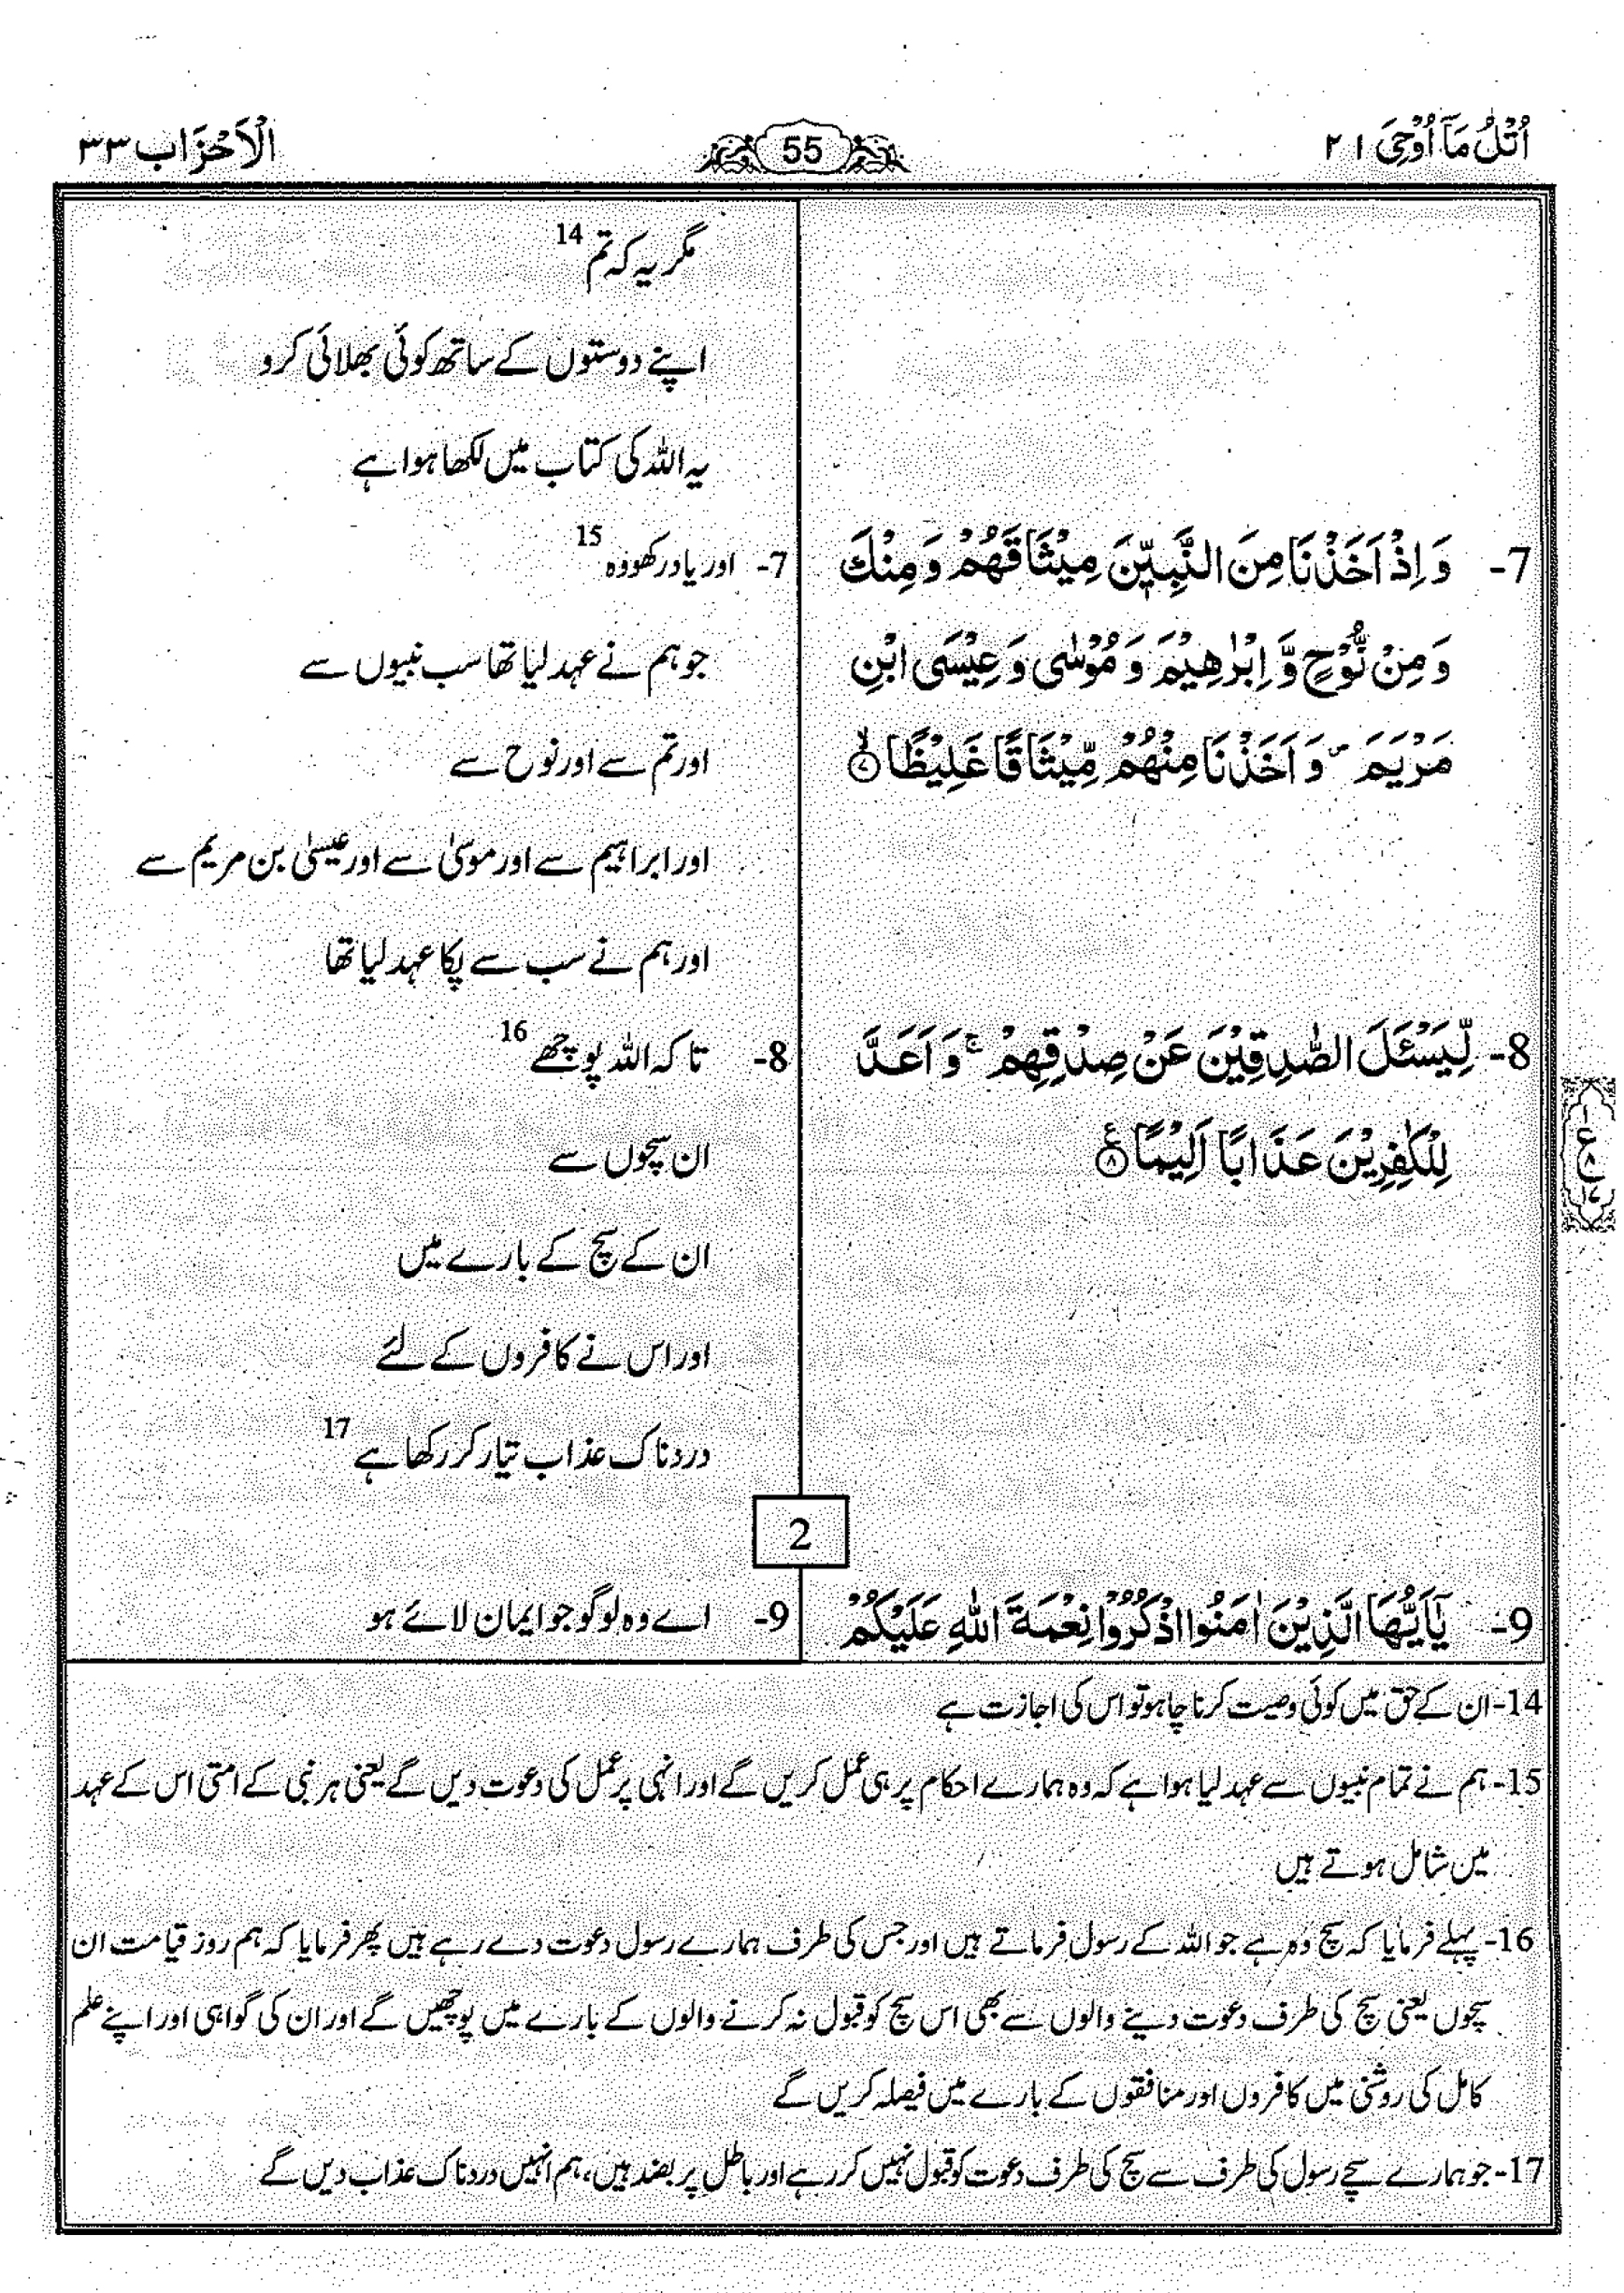 اُتْلُ مَآ اُوْحِیَ ۲۱
55
الْاَحْزَاب ۳۳
مگر یہ کہ تم 14
اپنے دوستوں کے ساتھ کوئی بھلائی کرو
یہ اللہ کی کتاب میں لکھا ہوا ہے
7- وَ اِذْ اَخَذْنَا مِنَ النَّبِیّٖنَ مِیْثَاقَهُمْ وَ مِنْكَ
وَ مِنْ نُّوْحٍ وَّ اِبْرٰهِیْمَ وَ مُوْسٰی وَ عِیْسَی ابْنِ
مَرْیَمَ ۪ وَ اَخَذْنَا مِنْهُمْ مِّیْثَاقًا غَلِیْظًا ۙ﴿۷﴾
7- اور یاد رکھو وہ 15
جو ہم نے عہد لیا تھا سب نبیوں سے
اور تم سے اور نوح سے
اور ابراہیم سے اور موسیٰ سے اور عیسیٰ بن مریم سے
اور ہم نے سب سے پکا عہد لیا تھا
8- لِّیَسْـَٔلَ الصّٰدِقِیْنَ عَنْ صِدْقِهِمْ ۚ وَ اَعَدَّ
لِلْكٰفِرِیْنَ عَذَابًا اَلِیْمًا ﴿۸﴾ ع
8- تا کہ اللہ پوچھے 16
ان سچوں سے
ان کے سچ کے بارے میں
اور اس نے کافروں کے لئے
دردناک عذاب تیار کر رکھا ہے 17
۱
ع
۸
۱۷
2
9- یٰۤاَیُّهَا الَّذِیْنَ اٰمَنُوا اذْكُرُوْا نِعْمَةَ اللّٰهِ عَلَیْكُمْ
9- اے وہ لوگو جو ایمان لائے ہو
14- ان کے حق میں کوئی وصیت کرنا چاہو تو اس کی اجازت ہے
15- ہم نے تمام نبیوں سے عہد لیا ہوا ہے کہ وہ ہمارے احکام پر ہی عمل کریں گے اور انہی پر عمل کی دعوت دیں گے یعنی ہر نبی کے امتی اس کے عہد
میں شامل ہوتے ہیں
16- پہلے فرمایا کہ سچ وہ ہے جو اللہ کے رسول فرماتے ہیں اور جس کی طرف ہمارے رسول دعوت دے رہے ہیں پھر فرمایا کہ ہم روز قیامت ان
سچوں یعنی سچ کی طرف دعوت دینے والوں سے بھی اس سچ کو قبول نہ کرنے والوں کے بارے میں پوچھیں گے اور ان کی گواہی اور اپنے علم
کامل کی روشنی میں کافروں اور منافقوں کے بارے میں فیصلہ کریں گے
17- جو ہمارے سچے رسول کی طرف سے سچ کی طرف دعوت کو قبول نہیں کر رہے اور باطل پر بضد ہیں، ہم انہیں دردناک عذاب دیں گے